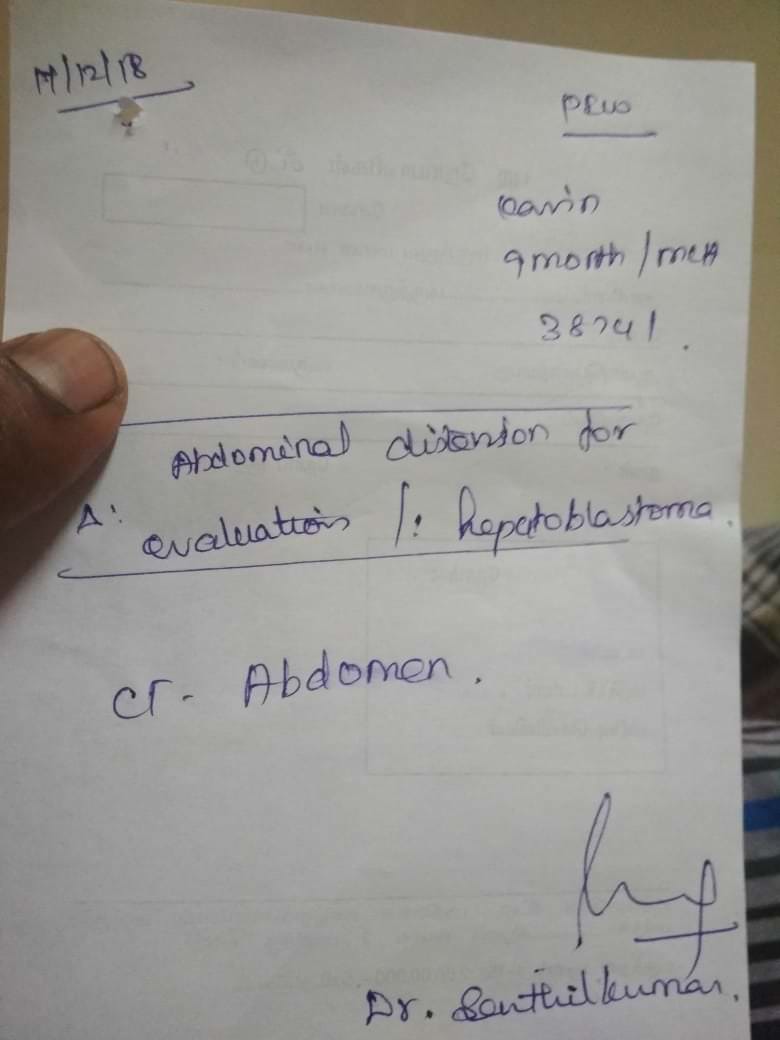 17/12/18
PRUO
Kavin
9month / mch
38741.
Abdominal distension for
Δ:
evaluation /: hepatoblastoma.
CT - Abdomen.
Dr. Senthilkumar.